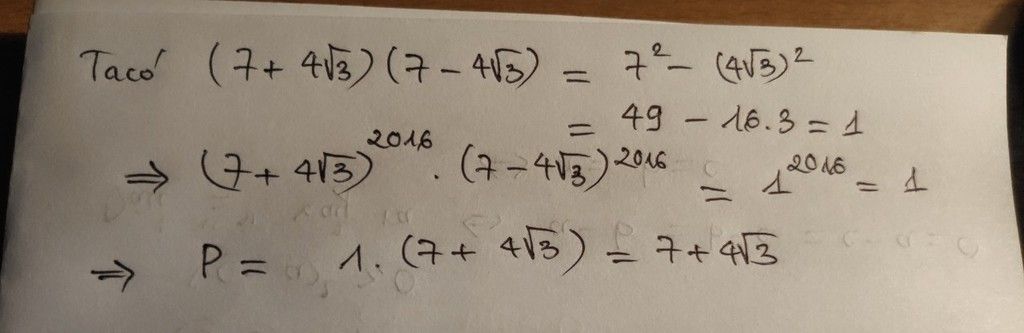 Ta có (7 + 4√3)(7 - 4√3) = 7² - (4√3)²
= 49 - 16.3 = 1
⇒ (7 + 4√3)²⁰¹⁶ . (7 - 4√3)²⁰¹⁶ = 1²⁰¹⁶ = 1
⇒ P = 1. (7 + 4√3) = 7 + 4√3